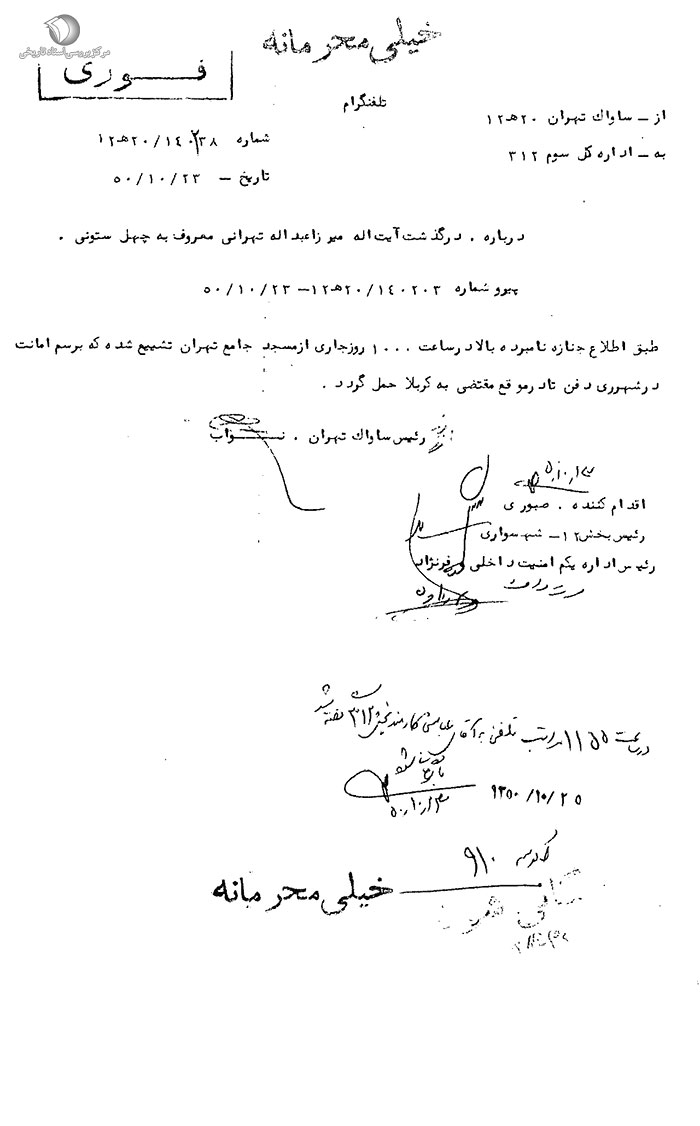 مرکز بررسی اسناد تاریخی
خیلی محرمانه
فوری
تلفنگرام
از – ساواک تهران ۲۰هـ۱۲
به – اداره کل سوم ۳۱۲
شماره ۲۰/۱۴۰۲۳۸هـ۱۲
تاریخ – ۵۰/۱۰/۲۳
درباره . درگذشت آیت اله میرزاعبداله تهرانی معروف به چهل ستونی .
پیرو شماره ۲۰/۱۴۰۲۰۳هـ۱۲– ۵۰/۱۰/۲۳
طبق اطلاع جنازه نامبرده بالا درساعت ۱۰۰۰ روزجاری ازمسجد جامع تهران تشییع شده که برسم امانت
درشهرری دفن تادرموقع مقتضی به کربلا حمل گردد .
رئیس ساواک تهران . نواب
اقدام کننده . صبوری
رئیس بخش ۱۲– شهسواری
رئیس اداره یکم امنیت داخلی فرنژاد
در ساعت ۱۱۵۵ مراتب تلفنی به آقای عباسی کارمند بخش ۳۱۲ گفته شد
۱۳۵۰/۱۰/۲۵
۹۱۰
خیلی محرمانه